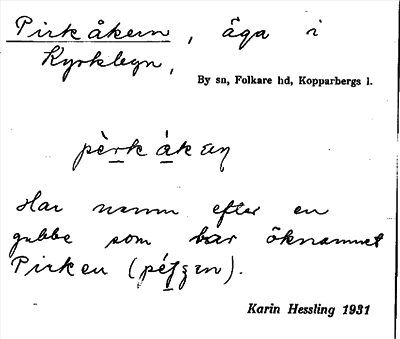 Pirkåkern, äga i
Kyrkbyn,
By sn, Folkare hd, Kopparbergs l.
pèrkåkæɳ
Har namn efter en
gubbe som bar öknamnet
Pirken
Karin Hessling 1931